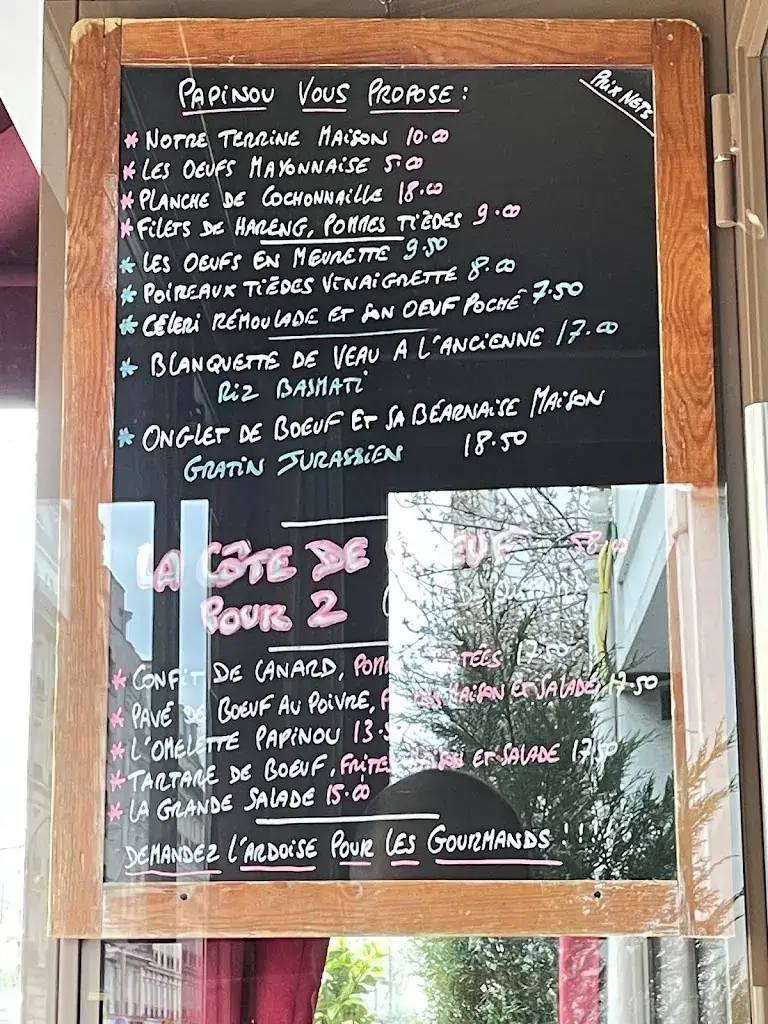 PAPINOU VOUS PROPOSE :
PRIX NETS
* NOTRE TERRINE MAISON 10.00
* LES OEUFS MAYONNAISE 5.00
* PLANCHE DE COCHONNAILLE 18.00
* FILETS DE HARENG, POMMES TIÈDES 9.00
* LES OEUFS EN MEURETTE 9.50
* POIREAUX TIÈDES VINAIGRETTE 8.00
* CÉLERI RÉMOULADE ET SON OEUF POCHÉ 7.50
* BLANQUETTE DE VEAU A L'ANCIENNE 17.00
RIZ BASMATI
* ONGLET DE BOEUF ET SA BÉARNAISE MAISON
GRATIN JURASSIEN 18.50
LA CÔTE DE 58.00
POUR 2
* CONFIT DE CANARD, 17.50
* PAVÉ DE BOEUF AU POIVRE, MAISON ET SALADE, 17.50
* L'OMELETTE PAPINOU 13.50
* TARTARE DE BOEUF, FRITES MAISON ET SALADE 17.50
* LA GRANDE SALADE 15.00
DEMANDEZ L'ARDOISE POUR LES GOURMANDS !!!